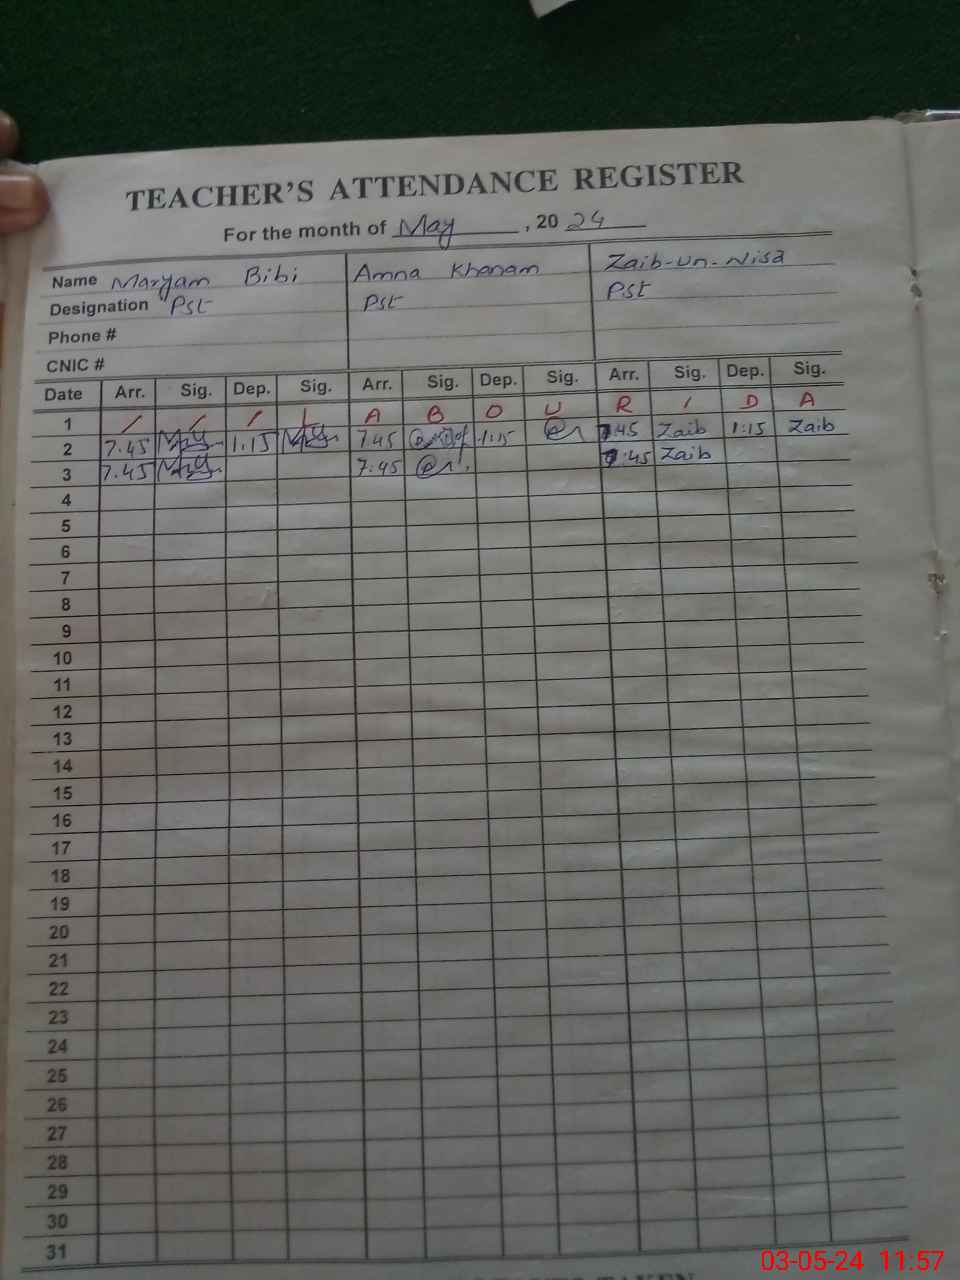 TEACHER'S ATTENDANCE REGISTER
For the month of May , 20 24
Name Maryam Bibi Amna Khanam Zaib-un-Nisa
Designation Pst Pst Pst
Phone #
CNIC #
Date Arr. Sig. Dep. Sig. Arr. Sig. Dep. Sig. Arr. Sig. Dep. Sig.
1 / / / | A B O U R I D A
2 7.45 1.15 7.45 1:15 7:45 Zaib 1:15 Zaib
3 7.45 7:45 7:45 Zaib
4
5
6
7
8
9
10
11
12
13
14
15
16
17
18
19
20
21
22
23
24
25
26
27
28
29
30
31
03-05-24 11:57